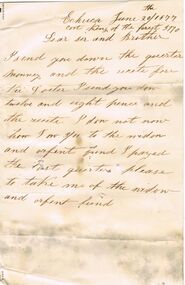 Echuca June 20th 1877
Court King of the forest 3770
Dear sir and Brother
I send you down the quarter
money and the recite for
the I send you down
twelve and eight pence and
the recite I don not now
how I on you to the widow
and orfent fund I payed
the last quarter please
to take me of the widow
and orfent fund